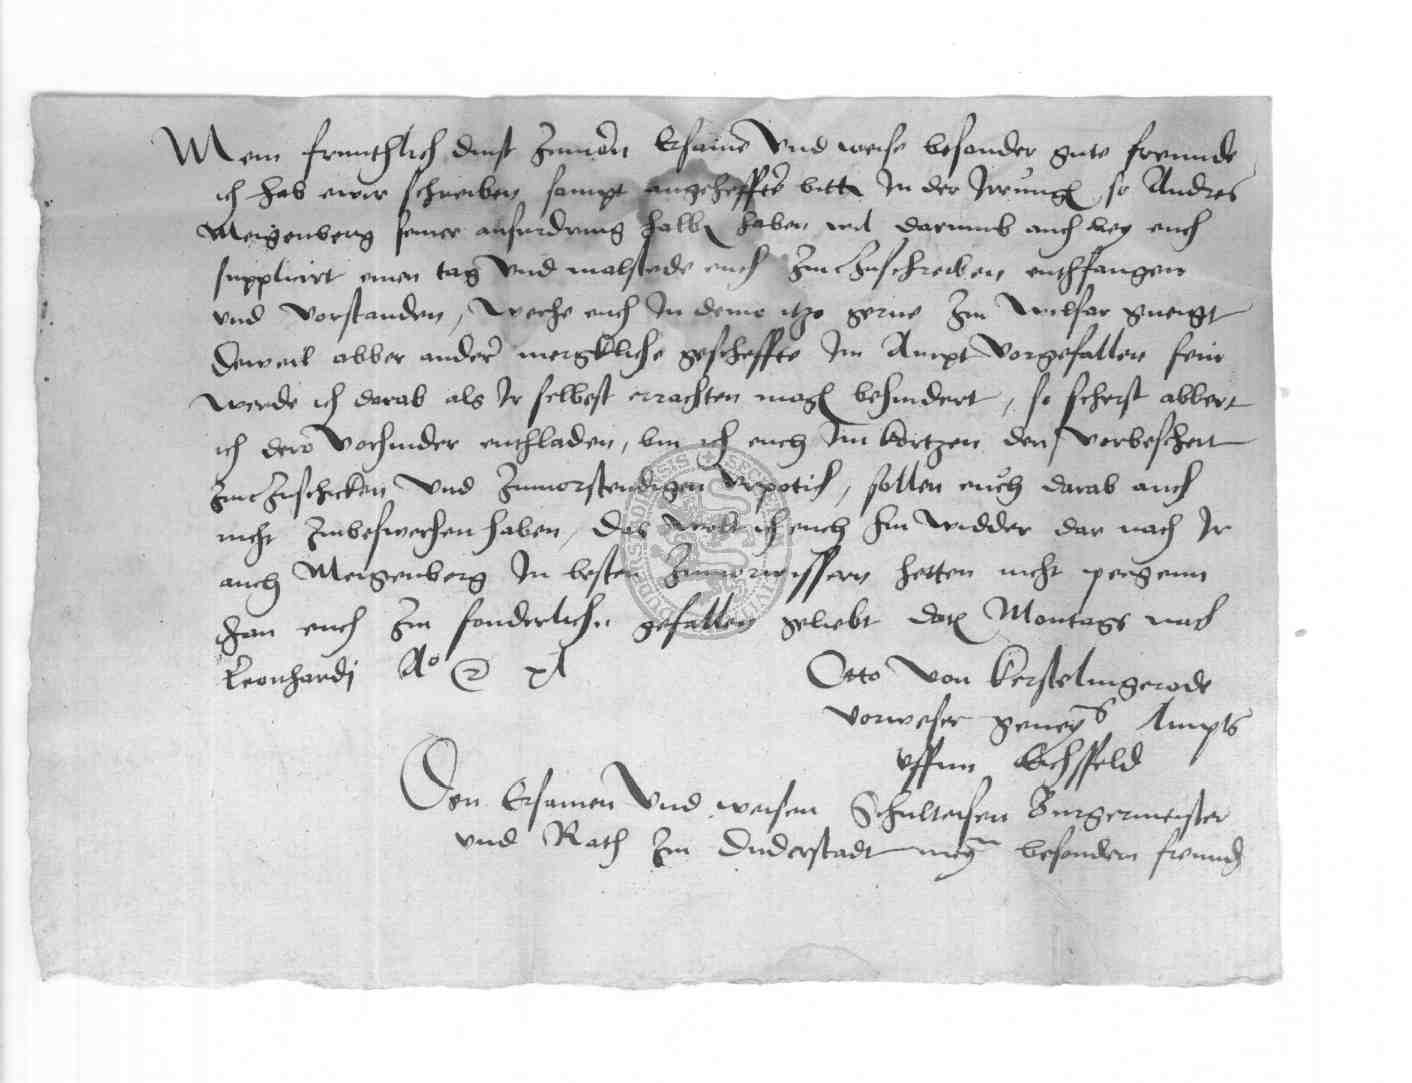 Mein fruntlich dinst zuuorn Ersame Vnd weise besonder gute freunde
ich hab ewir schreiben sampt angeheffte bitt In der Irrung so Andres
Meigenberg seiner anfurdrung halb haben wil darumb auch bey euch
supplicirt einen tag Vnd malstade euch Zuzuschreiben enthfangen
vnd Vorstanden, Weche euch In deme itzo gerne Zu Wilfar gneigt
Deweil abber ander mergkliche gescheffte Im Ampt Vorgefallen sein
werde ich darab als Ir selbest errachten magk behindert, so scherst abber
ich dero Vorhinder enthladen, bin ich euch Im kortzen den Vorbescheit
Zuzuschicken Vnd Zuuorstendigen, sollen euch darab auch
nicht Zubeswerhen haben, Das wolt ich euch hin widder dar nach Ir
auch Meigenberg In besten Zuuorwissern hetten nicht pergenn
Dan euch Zu sonderlichen gefallen geliebt Dat Montags nach
Leonhardi Ao xl
Otto Von Kerstelingerode
Vorweser Ampts
vffm Eichsfeld
Den Ersamen Vnd weisen Schulteisen Burgermeister
vnd Rath Zu Duderstadt meyn besondern freund